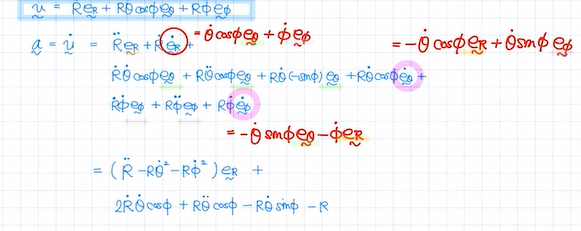 v = Ṙe_R + Rθ̇cosϕe_θ + Rϕ̇e_ϕ
a = v̇ = R̈e_R + Ṙė_R + = θ̇cosϕe_θ + ϕ̇e_ϕ = -θ̇cosϕe_R + θ̇sinϕe_ϕ
Ṙθ̇cosϕe_θ + Rθ̈cosϕe_θ + Rθ̇(-sinϕ)e_θ + Rθ̇cosϕė_θ +
Ṙϕ̇e_ϕ + Rϕ̈e_ϕ + Rϕ̇ė_ϕ
= -θ̇sinϕe_θ - ϕ̇e_R
= (R̈ - Rθ̇² - Rϕ̇²)e_R +
2Ṙθ̇cosϕ + Rθ̈cosϕ - Rθ̇sinϕ - R